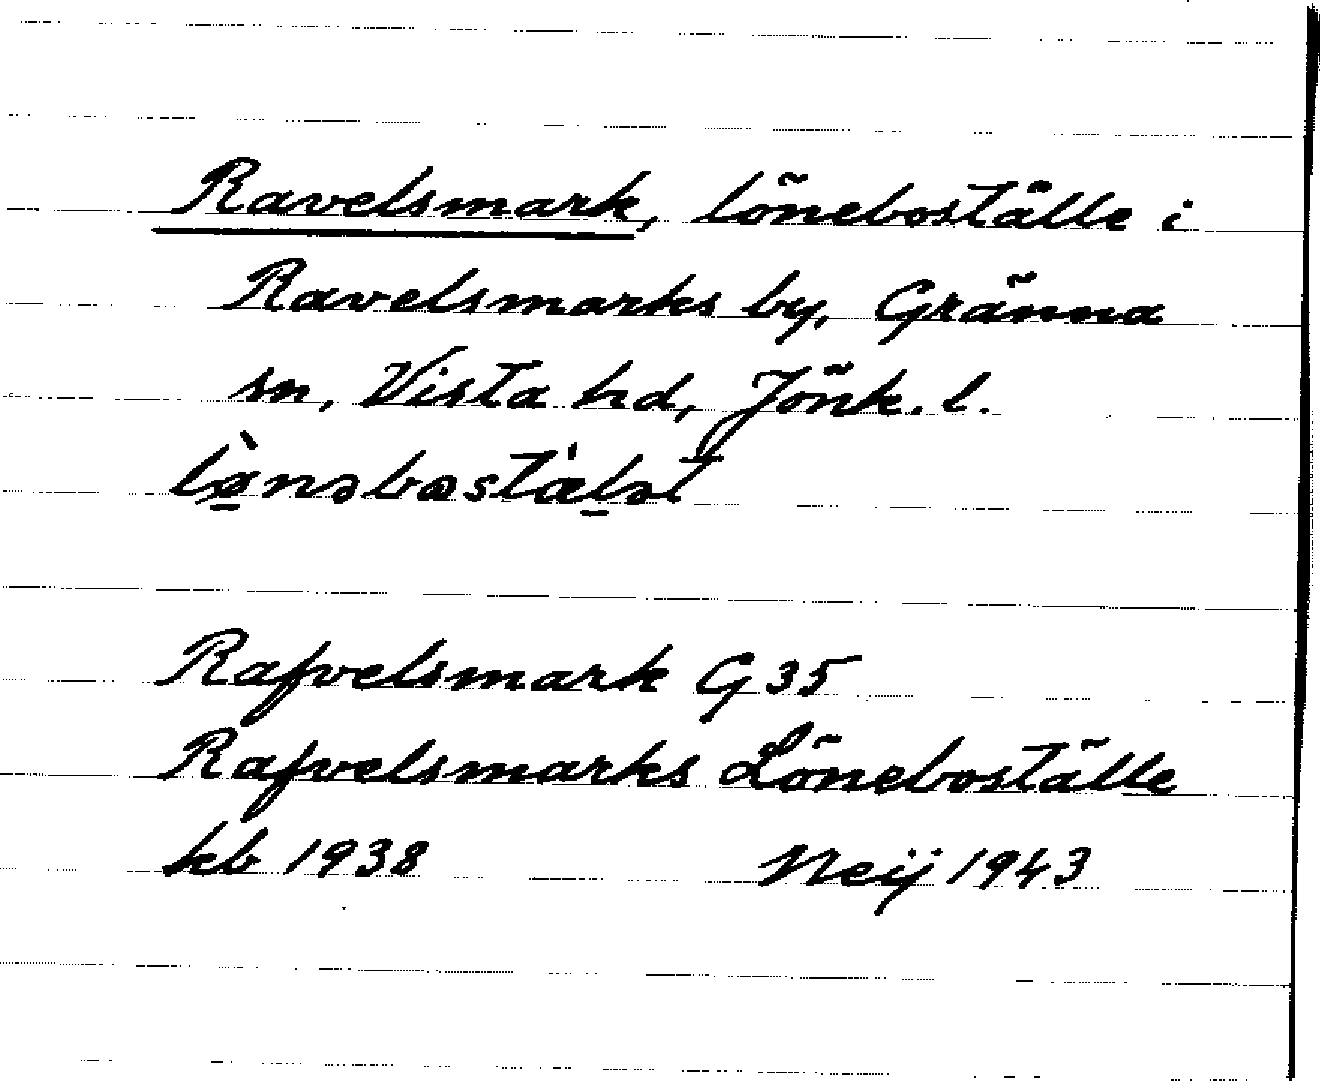 Ravelsmark, löneboställe i
Ravelsmarks by, Gränna
sn, Vista hd, Jönk. l.
Rafvelsmark G 35
Rafvelsmarks Löneboställe
kb 1938 Neij 1943